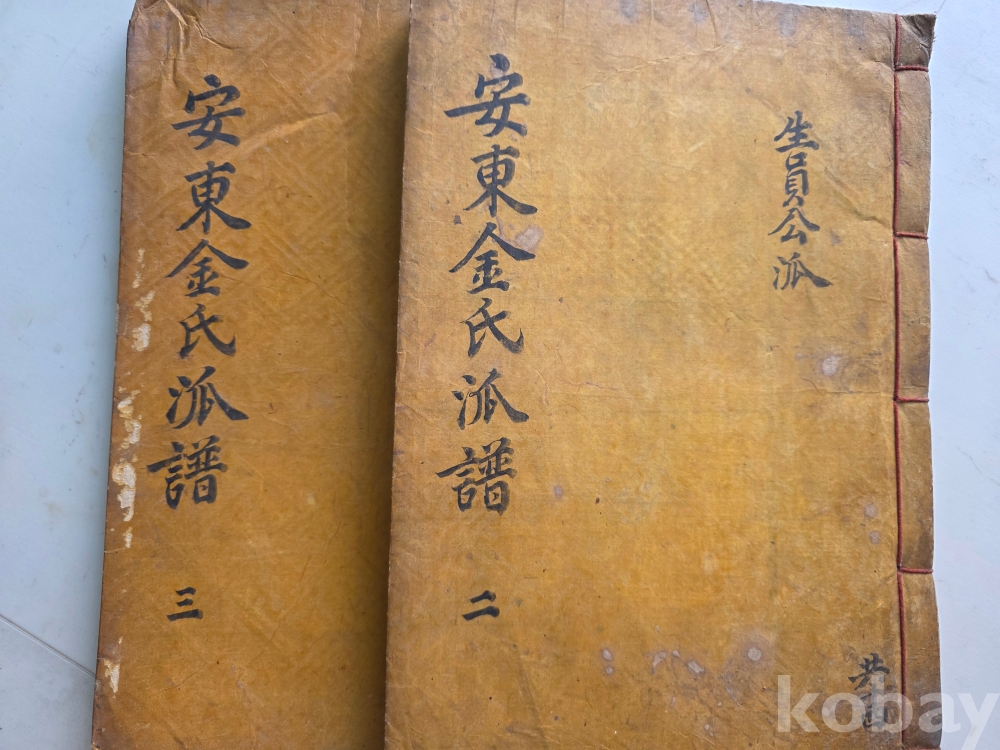 生員公泒
共
安東金氏泒譜 二
安東金氏泒譜 三
kobay